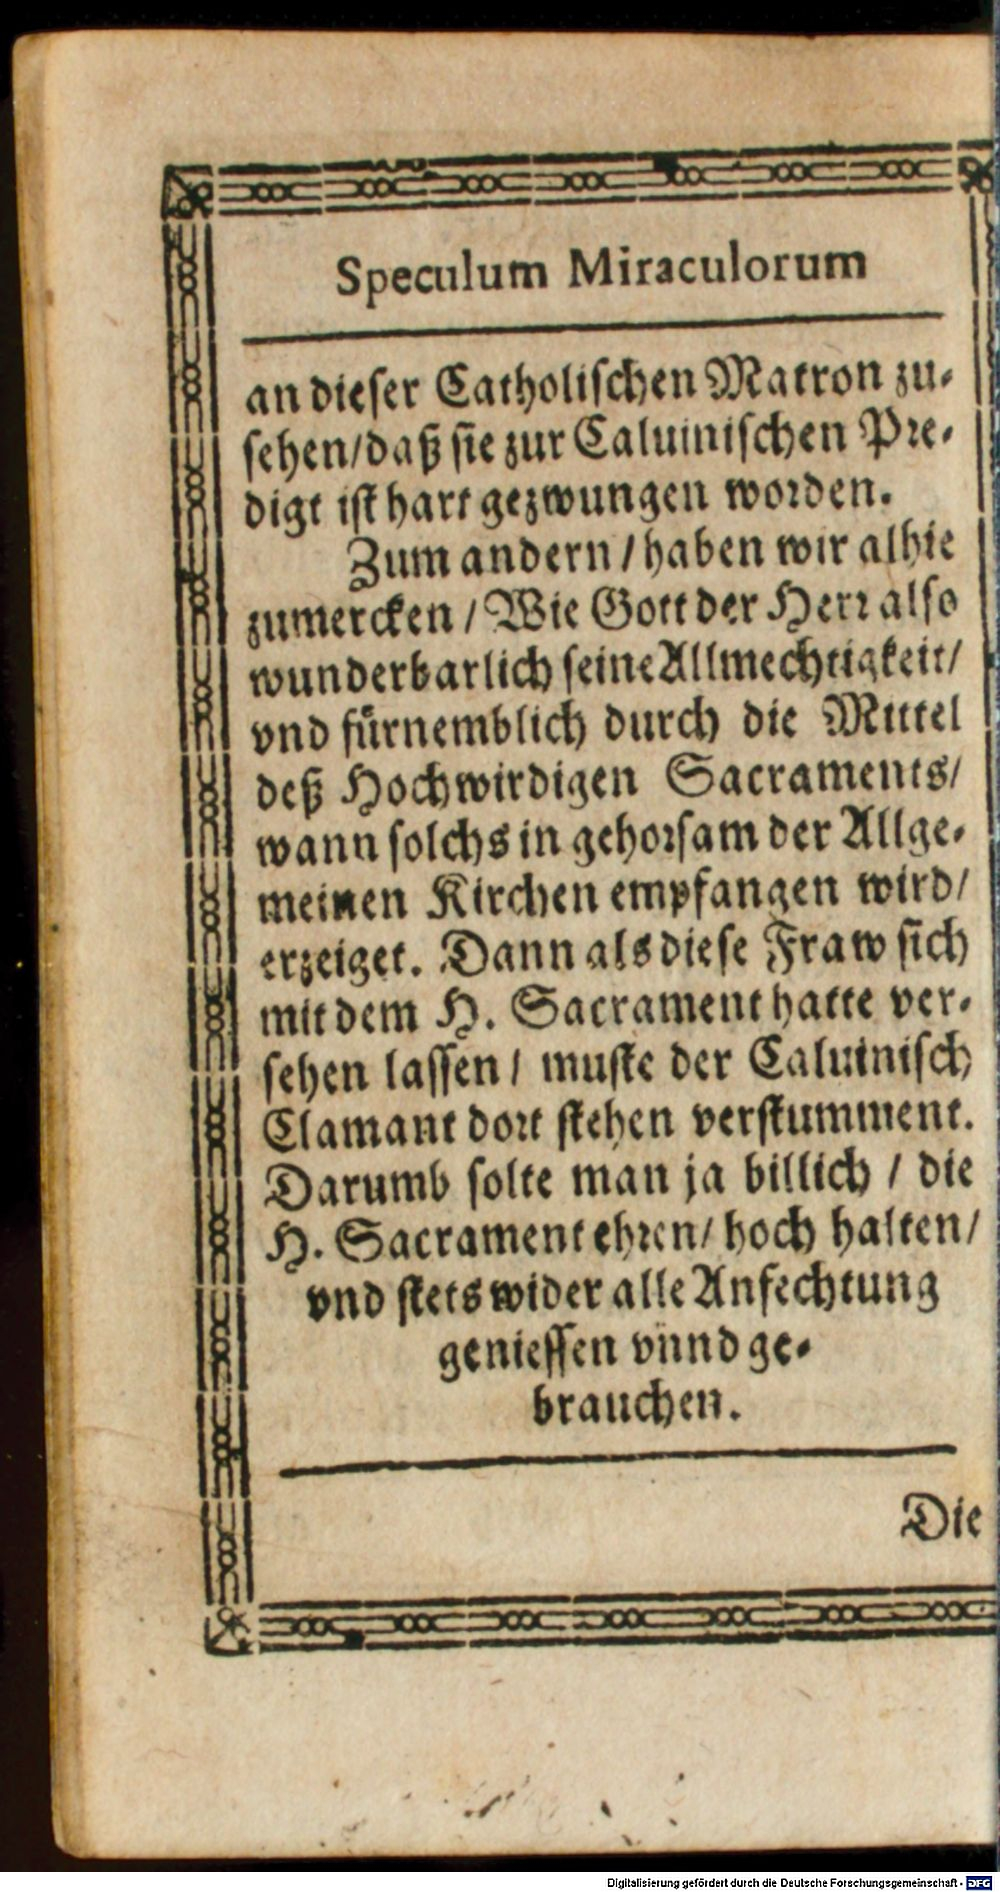 Speculum Miraculorum
an dieser Catholischen Matron zu-
sehen/daß sie zur Caluinischen Pre-
digt ist hart gezwungen worden.
Zum andern / haben wir alhie
zumercken / Wie Gott der Herr also
wunderbarlich seine Allmechtigkeit/
vnd fürnemblich durch die Mittel
deß Hochwirdigen Sacraments/
wann solchs in gehorsam der Allge-
meinen Kirchen empfangen wird/
erzeiget. Dann als diese Fraw sich
mit dem H. Sacrament hatte ver-
sehen lassen / muste der Caluinisch
Clamant dort stehen verstumment.
Darumb solte man ja billich / die
H. Sacrament ehren/ hoch halten/
vnd stets wider alle Anfechtung
geniessen vnnd ge-
brauchen.
Die
Digitalisierung gefördert durch die Deutsche Forschungsgemeinschaft - DFG